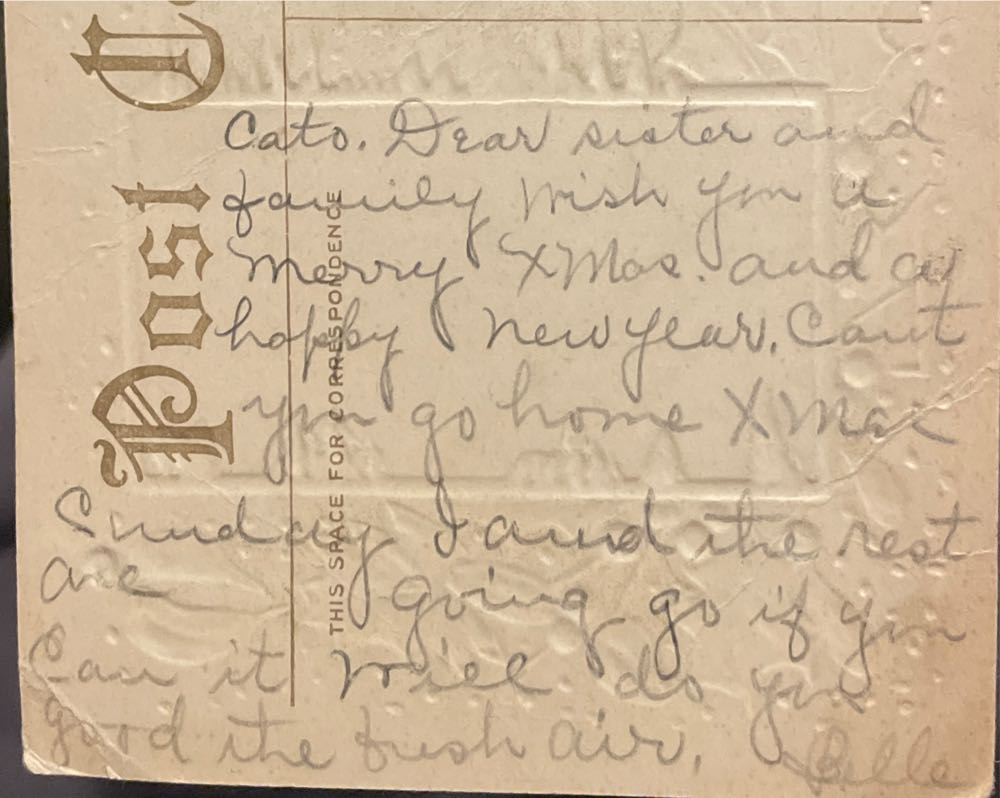 Post C
THIS SPACE FOR CORRESPONDENCE
Cato. Dear sister and
family wish you a
Merry XMas. and a
happy new year. Cant
you go home XMas
Sunday I and the rest
are going go if you
can it will do you
good the fresh air.
Belle